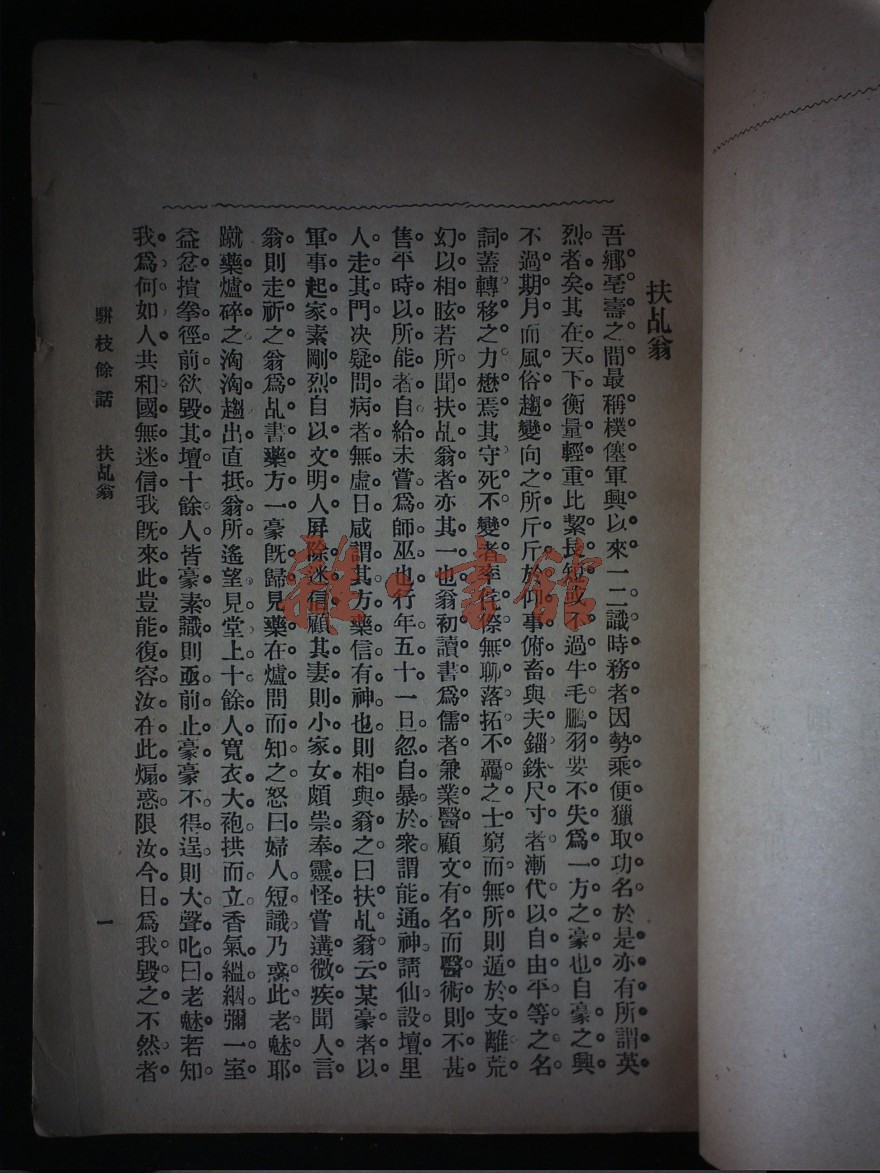 扶乩翁
吾鄉亳壽之間最稱樸僿軍興以來一二識時務者因勢乘便獵取功名於是亦有所謂英
烈者矣其在天下衡量輕重比絜長短或不過牛毛鵬羽要不失爲一方之豪也自豪之興
不過期月而風俗趨變向之所斤斤於仰事俯畜與夫錙銖尺寸者漸代以自由平等之名
詞蓋轉移之力懋焉其守死不變者率無聊落拓不羈之士窮而無所則遁於支離荒
幻以相眩若所聞扶乩翁者亦其一也翁初讀書爲儒者兼業醫顧文有名而醫術則不甚
售平時以所能者自給未嘗爲師巫也行年五十一旦忽自暴於衆謂能通神請仙設壇里
人走其門决疑問病者無虛日咸謂其方藥信有神也則相與翁之曰扶乩翁云某豪者以
軍事起家素剛烈自以文明人屏除迷信顧其妻則小家女頗崇奉靈怪嘗遘微疾聞人言
翁則走祈之翁爲乩書藥方一豪旣歸見藥在爐問而知之怒曰婦人短識乃惑此老魅耶
蹴藥爐碎之洶洶趨出直抵翁所遙望見堂上十餘人寬衣大袍拱而立香氣縕絪彌一室
益忿揎拳徑前欲毀其壇十餘人皆豪素識則亟前止豪豪不得逞則大聲叱曰老魅若知
我爲何如人共和國無迷信我旣來此豈能復容汝在此煽惑限汝今日爲我毀之不然者
駢枝餘話 扶乩翁 一
雜·書館